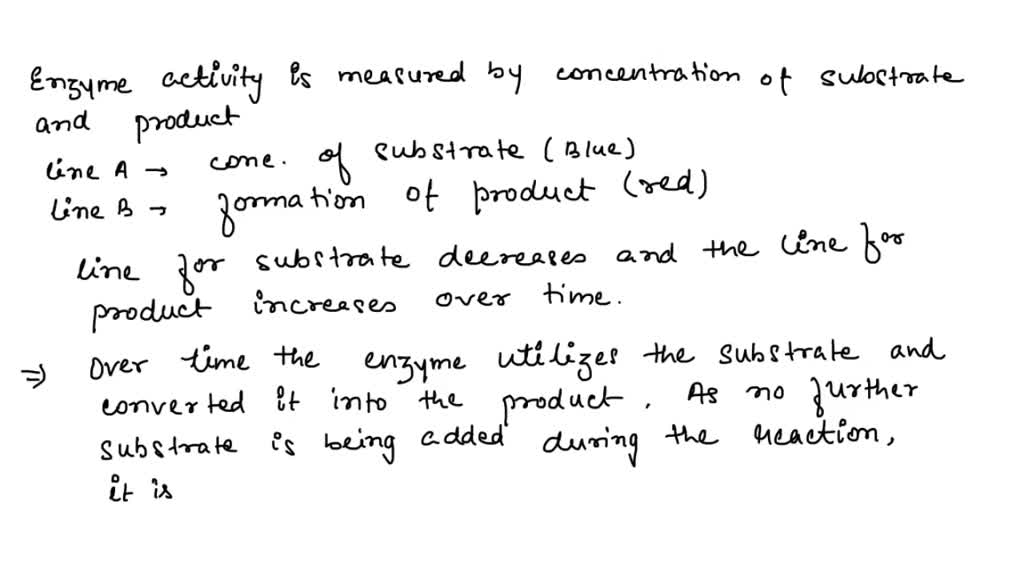 Enzyme activity is measured by concentration of substrate
and product
line A → conc. of substrate (Blue)
line B → formation of product (red)
line for substrate decreases and the line for
product increases over time.
⇒ Over time the enzyme utilizes the substrate and
converted it into the product. As no further
substrate is being added during the reaction,
it is